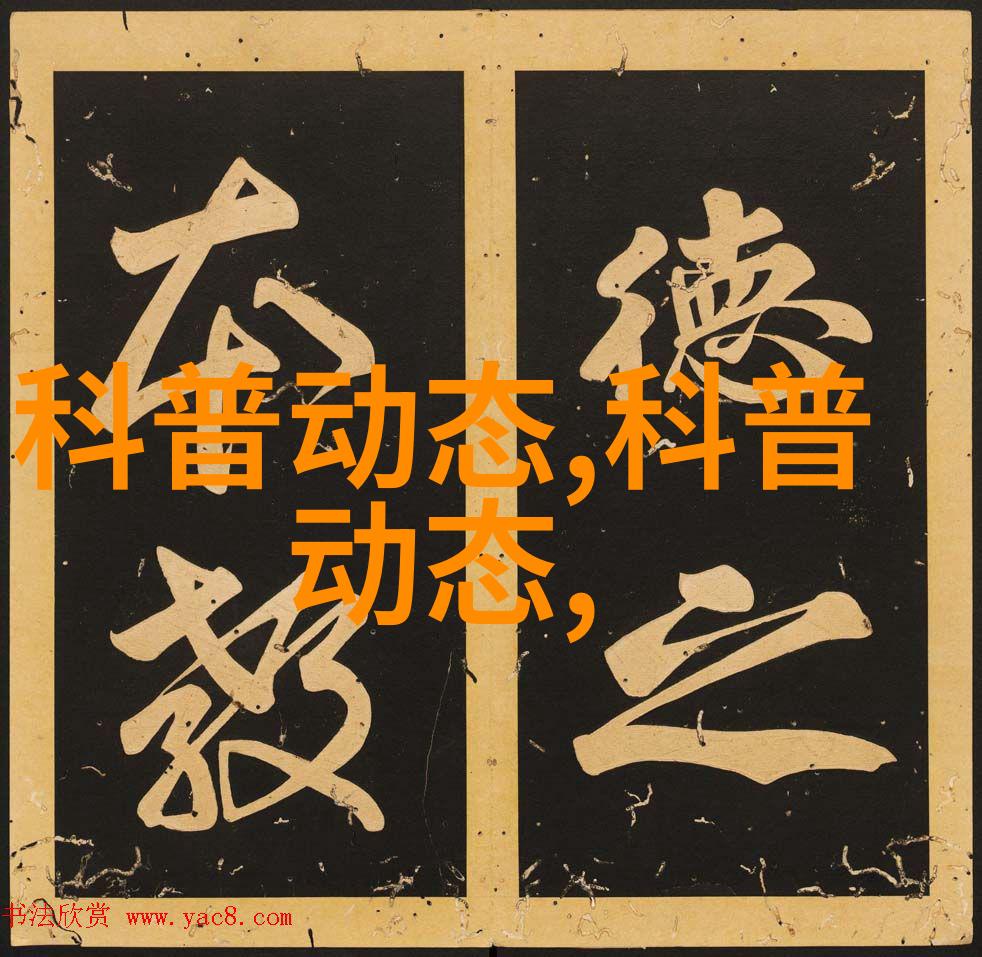 德之
本教
科普动态,科普
动态,
书法欣赏 www.yac8.com